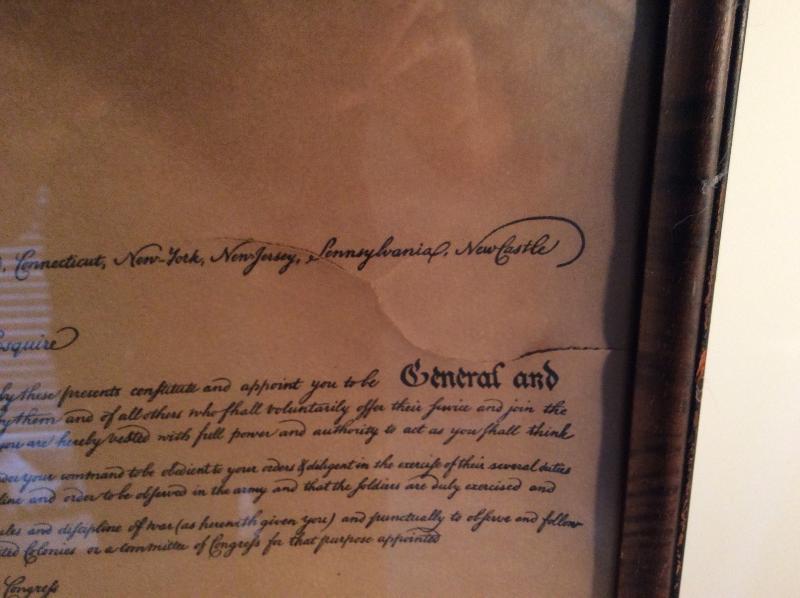 , Connecticut, New-York, New-Jersey, Pennsylvania, New Castle
squire
by these presents constitute and appoint you to be General and
by them and of all others who shall voluntarily offer their service and join the
you are hereby vested with full power and authority to act as you shall think
nder your command to be obedient to your orders & diligent in the exercise of their several duties
line and order to be observed in the army and that the soldiers are duly exercised and
ules and discipline of war (as herewith given you) and punctually to observe and follow
ted Colonies or a committee of Congress for that purpose appointed
Congress